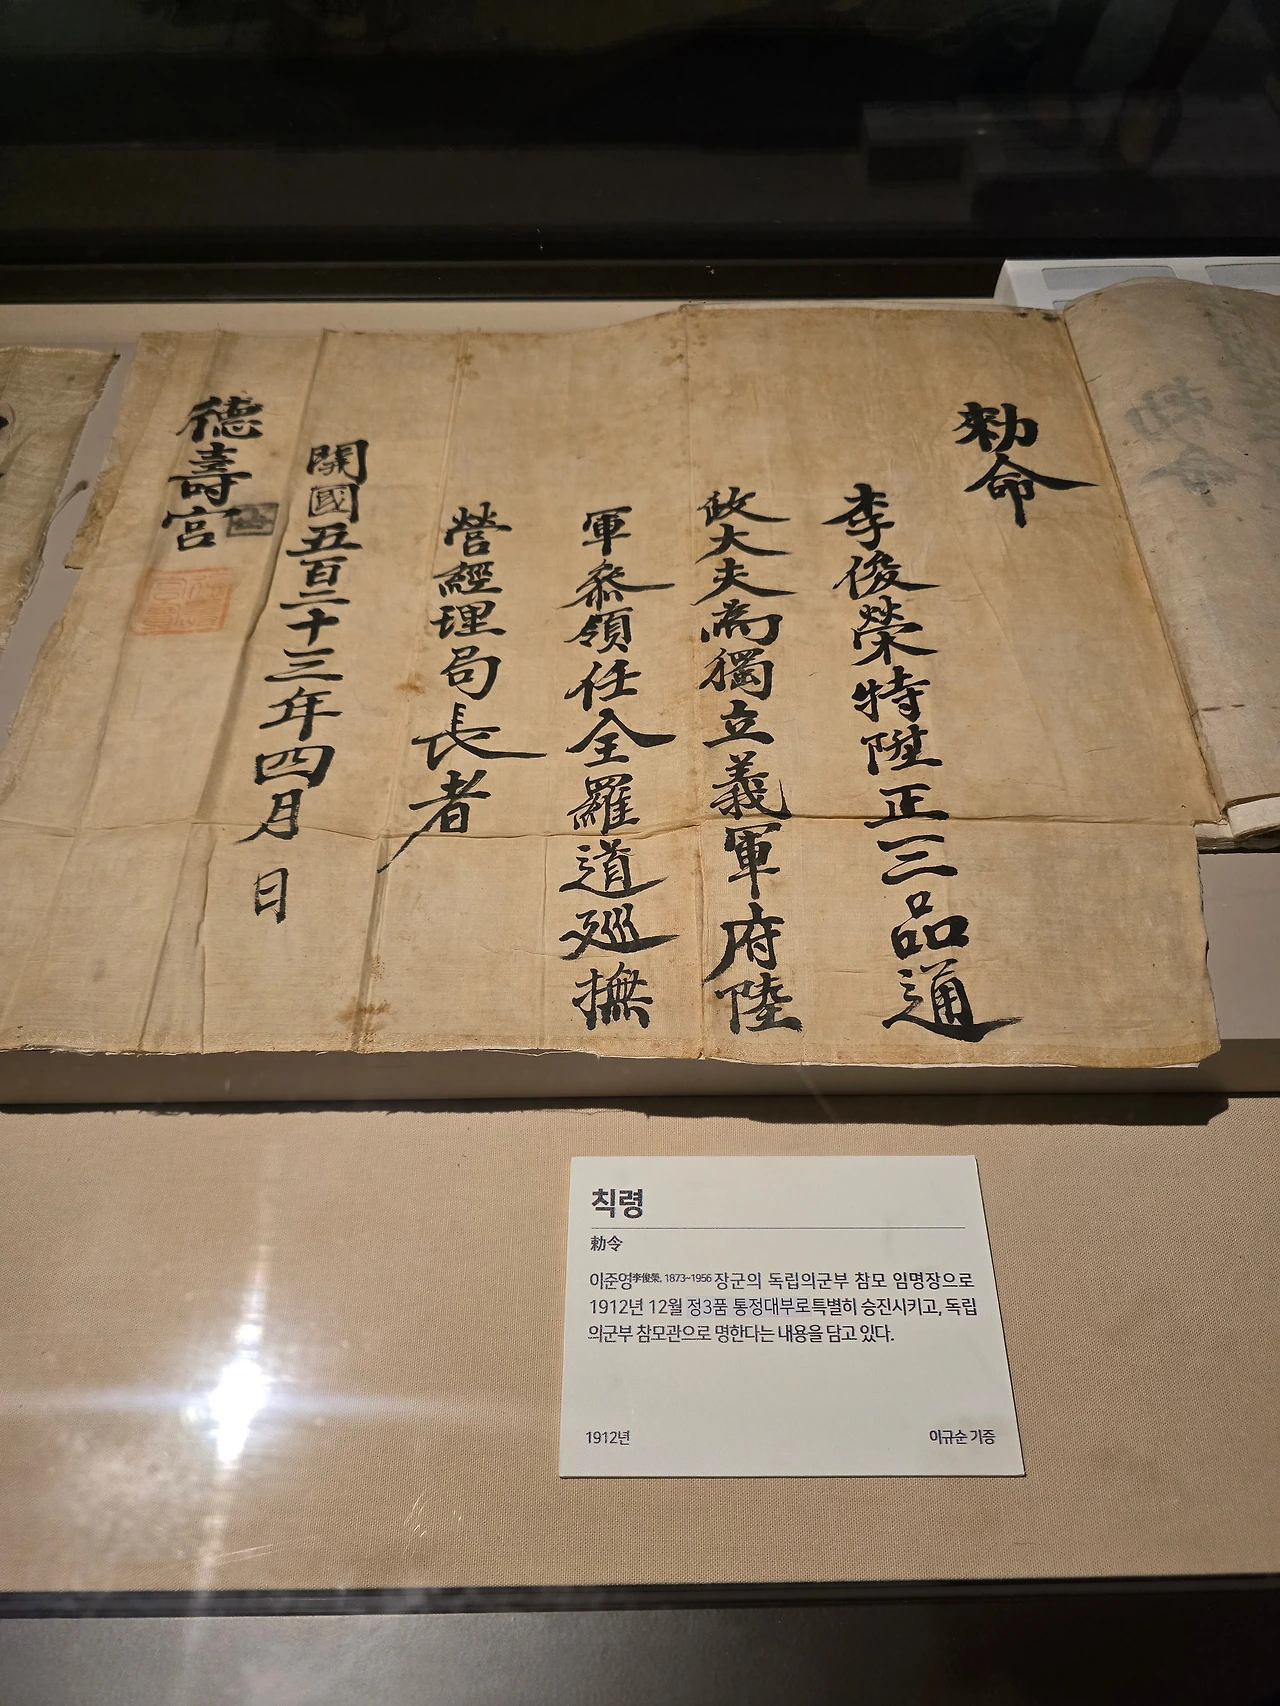 勅命
李俊榮特陞正三品通
政大夫為獨立義軍府陸
軍叅領任全羅道廵撫
營經理局長者
開國五百二十三年四月 日
德壽宮
칙령
勅令
이준영李俊榮, 1873~1956 장군의 독립의군부 참모 임명장으로
1912년 12월 정3품 통정대부로특별히 승진시키고, 독립
의군부 참모관으로 명한다는 내용을 담고 있다.
1912년
이규순 기증